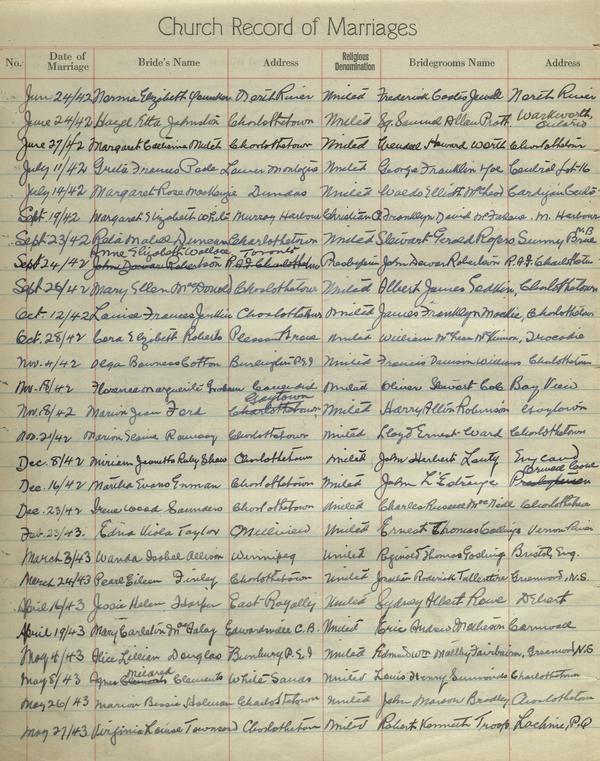 Church Record of Marriages
No. Date of Marriage Bride's Name Address Religious Denomination Bridegrooms Name Address
June 24/42 Norma Elizabeth North River United Frederick Coates Jewell North River
June 24/42 Hazel Etta Johnston Charlottetown United Samuel Allan Rath Warkworth, Ontario
June 27/42 Margaret Catherine Charlottetown United Howard Worth Charlottetown
July 11/42 Greta Frances Lower Montague United George Franklin Central Lot-16
July 14/42 Margaret Rose MacKenzie Dundas United Waldo Elliott McLeod Cardigan
Sept 19/42 Margaret Elizabeth White Murray Harbour Christian Franklyn David M. Harbour
Sept 23/42 Mabel Duncan Charlottetown United Stewart Gerald Rogers Sunny Brae N.B
Sept 24/42 Anne Elizabeth Wallace Toronto Presbyterian John Dewar Robertson
Sept 26/42 Mary Ellen McDonald Charlottetown United Albert James Charlottetown
Oct. 12/42 Louise Frances Jenkins Charlottetown United James Franklyn Charlottetown
Oct. 28/42 Cora Elizabeth Roberts Pleasant Grove United William McKinnon, Tracadie
Nov. 4/42 Olga Bowness Cotton Burlington P.E.I United Francis Williams Charlottetown
Nov. 18/42 Florence Marguerite Graham Cavendish United Oliver Stewart Cole Bay View
Nov. 18/42 Marion Jean Ford Charlottetown United Harry Robinson
Nov. 21/42 Marion Elaine Ramsay Charlottetown United Lloyd Ernest Ward Charlottetown
Dec. 8/42 Miriam Jeanetta Ruby Shaw Charlottetown United John Herbert England
Dec. 16/42 Martha Evans Enman Charlottetown United John Presbyterian
Dec. 23/42 Irene Wood Saunders Charlottetown United Charles Russell Charlottetown
Feb. 23/43. Edna Viola Taylor Millview United Ernest Thomas Vernon River
March 3/43 Wanda Isobel Allison Winnipeg United Reginald Thomas Gosling Bristol, Eng.
March 24/43 Pearl Eileen Finley Charlottetown United Roderick Greenwood, N.S.
April 16/43 Jessie Helen Harper East Royalty United Sydney Albert Rowe Debert
April 19/43 Mary Carleton C.B. United Eric Andrew Matheson Cornwall
May 4/43 Alice Lillian Douglas Bunbury P.E.I United Fairbairn, Greenwood N.S
May 8/43 Agnes Mildred Clements White Sands United Louis Henry Simmonds Charlottetown
May 26/43 Marion Bessie Holman Charlottetown United John Bradley Charlottetown
May 27/43 Virginia Louise Townsend Charlottetown United Robert Kenneth Troop Lachine, P.Q